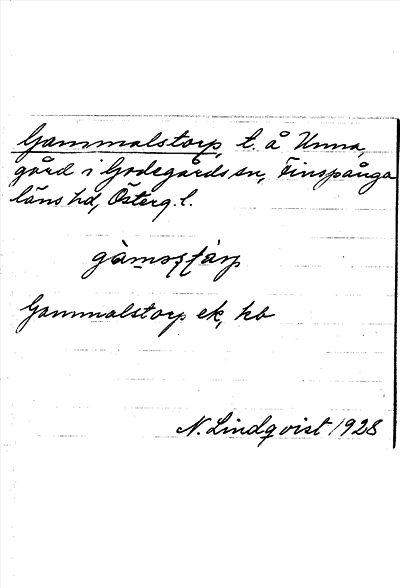 Gammalstorp, t. å Unna,
gård i Godegårds sn, Finspånga
läns hd, Österg. l.
Gammalstorp ek, kb
N. Lindqvist 1928